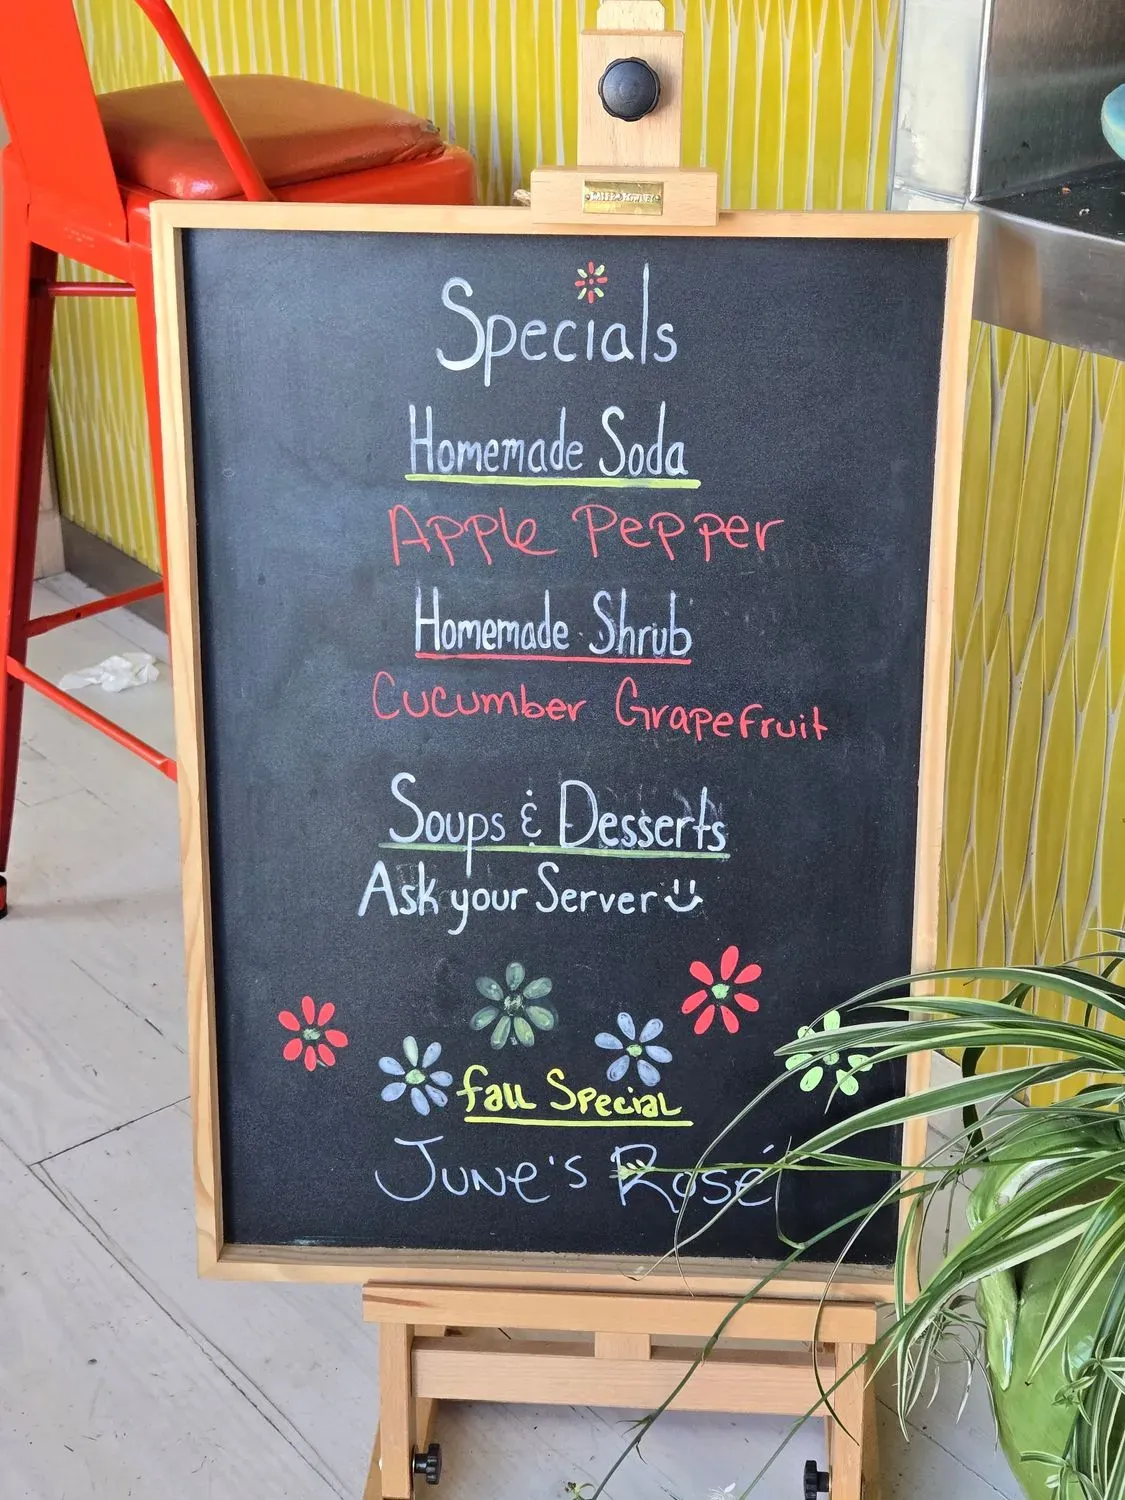 Specials
Homemade Soda
Apple Pepper
Homemade Shrub
Cucumber Grapefruit
Soups & Desserts
Ask your Server
Fall Special
June's Rosé